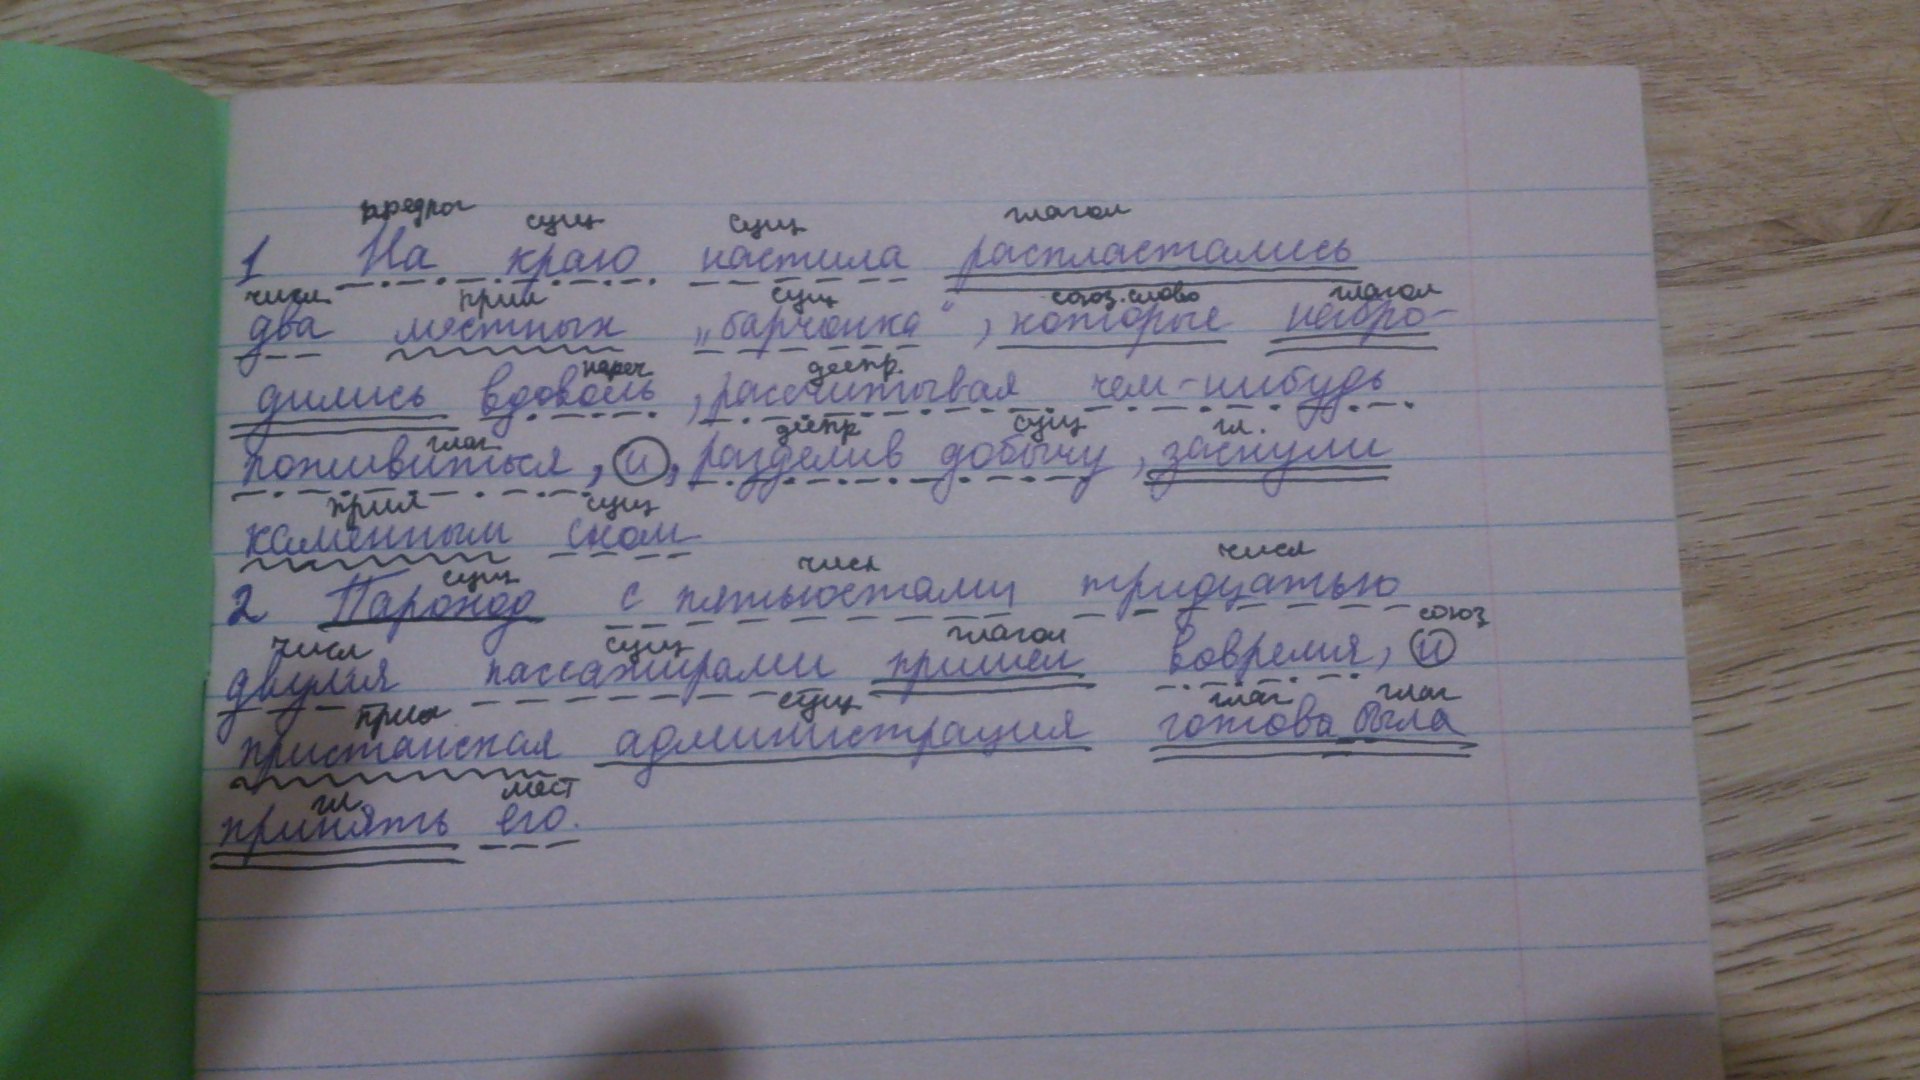 предлог сущ сущ глагол
1 На краю настила распластались
числ прил сущ союз.слово глагол
два местных „барчонка", которые набро-
нареч деепр.
дились вдоволь, рассчитывая чем-нибудь
глаг деепр сущ гл.
поживиться, и, разделив добычу, заснули
прил сущ
каменным сном
сущ числ числ
2 Пароход с пятьюстами тридцатью
числ сущ глагол союз
двумя пассажирами пришел вовремя, и
прил сущ глаг глаг
пристанская администрация готова была
гл мест
принять его.